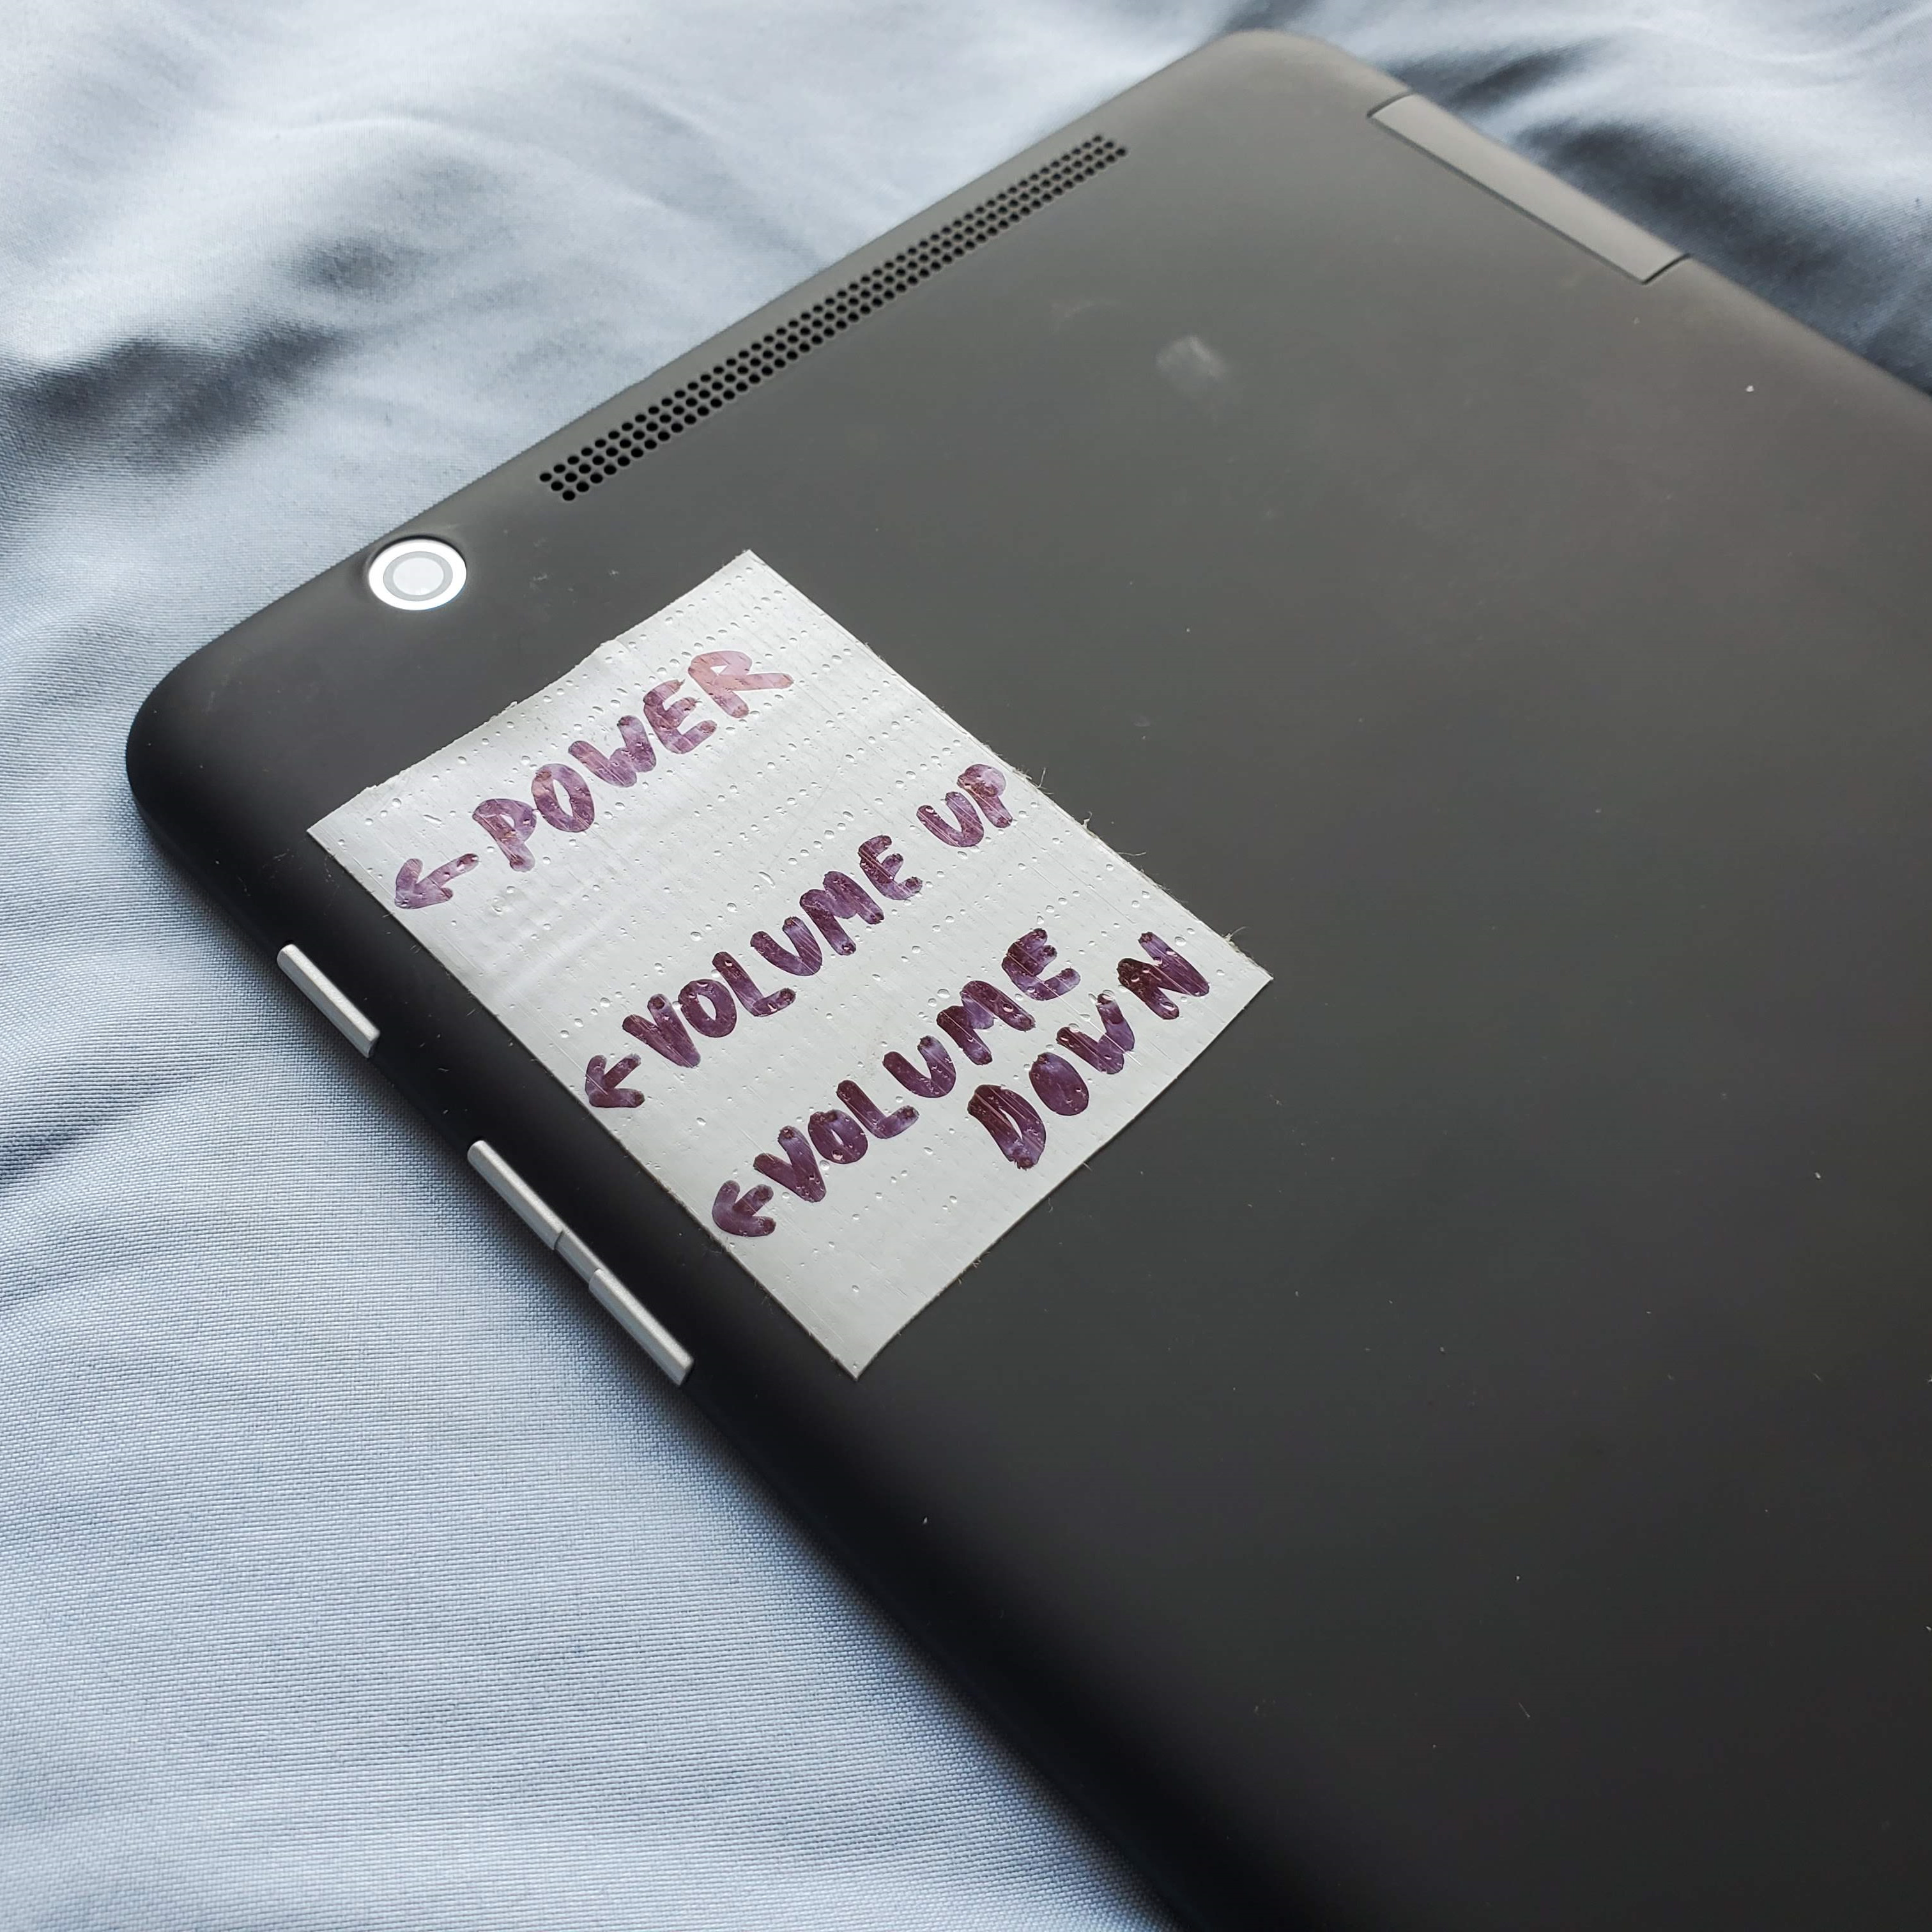 ←POWER
←VOLUME UP
←VOLUME
DOWN